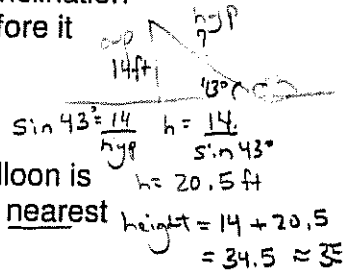 nclination
fore it
opp
hyp
?
14ft
43°
sin 43° = 14 / hyp h = 14 / sin 43°
lloon is
h = 20.5 ft
nearest
height = 14 + 20.5
= 34.5 ≈ 35